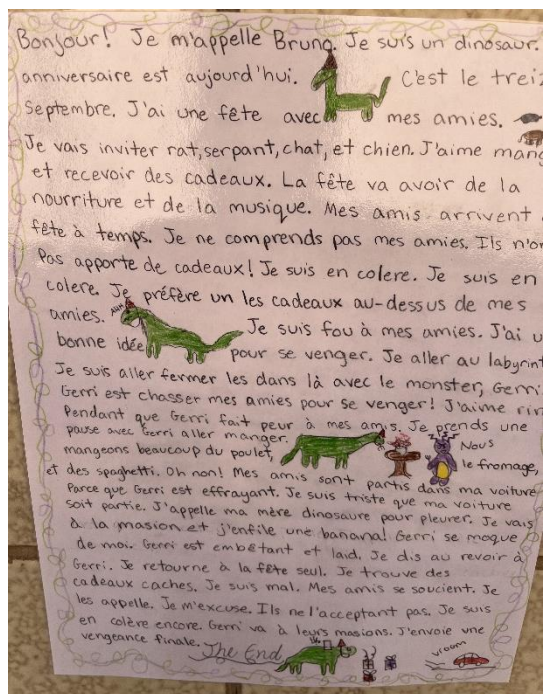 Bonjour! Je m'appelle Bruno. Je suis un dinosaur.
anniversaire est aujourd'hui. C'est le treiz
Septembre. J'ai une fête avec mes amies.
Je vais inviter rat, serpant, chat, et chien. J'aime mang
et recevoir des cadeaux. La fête va avoir de la
nourriture et de la musique. Mes amis arrivent
fête à temps. Je ne comprends pas mes amies. Ils n'o
Pas apporte de cadeaux! Je suis en colere. Je suis en
colere. Je préfère un les cadeaux au-dessus de mes
amies. Je suis fou à mes amies. J'ai u
bonne idée pour se venger. Je aller au labyrint
Je suis aller fermer les dans là avec le monster, Gerri
Gerri est chasser mes amies pour se venger! J'aime rir
Pendant que Gerri fait peur à mes amis. Je prends une
pause avec Gerri aller manger. Nous
mangeons beaucoup du poulet, le fromage,
et des spaghetti. Oh non! Mes amis sont partis dans ma voiture
Parce que Gerri est effrayant. Je suis triste que ma voiture
soit partie. J'appelle ma mère dinosaure pour pleurer. Je vais
à la masion et j'enfile une banana! Gerri se moque
de moi. Gerri est embêtant et laid. Je dis au revoir à
Gerri. Je retourne à la fête seul. Je trouve des
cadeaux caches. Je suis mal. Mes amis se soucient. Je
les appelle. Je m'excuse. Ils ne l'acceptant pas. Je suis
en colère encore. Gerri va à leurs masions. J'envoie une
vengeance finale. The End
vrooom